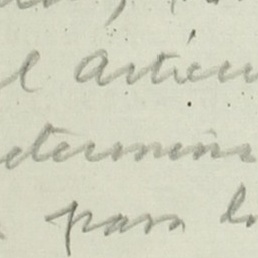 l Articu
etermina
para lo